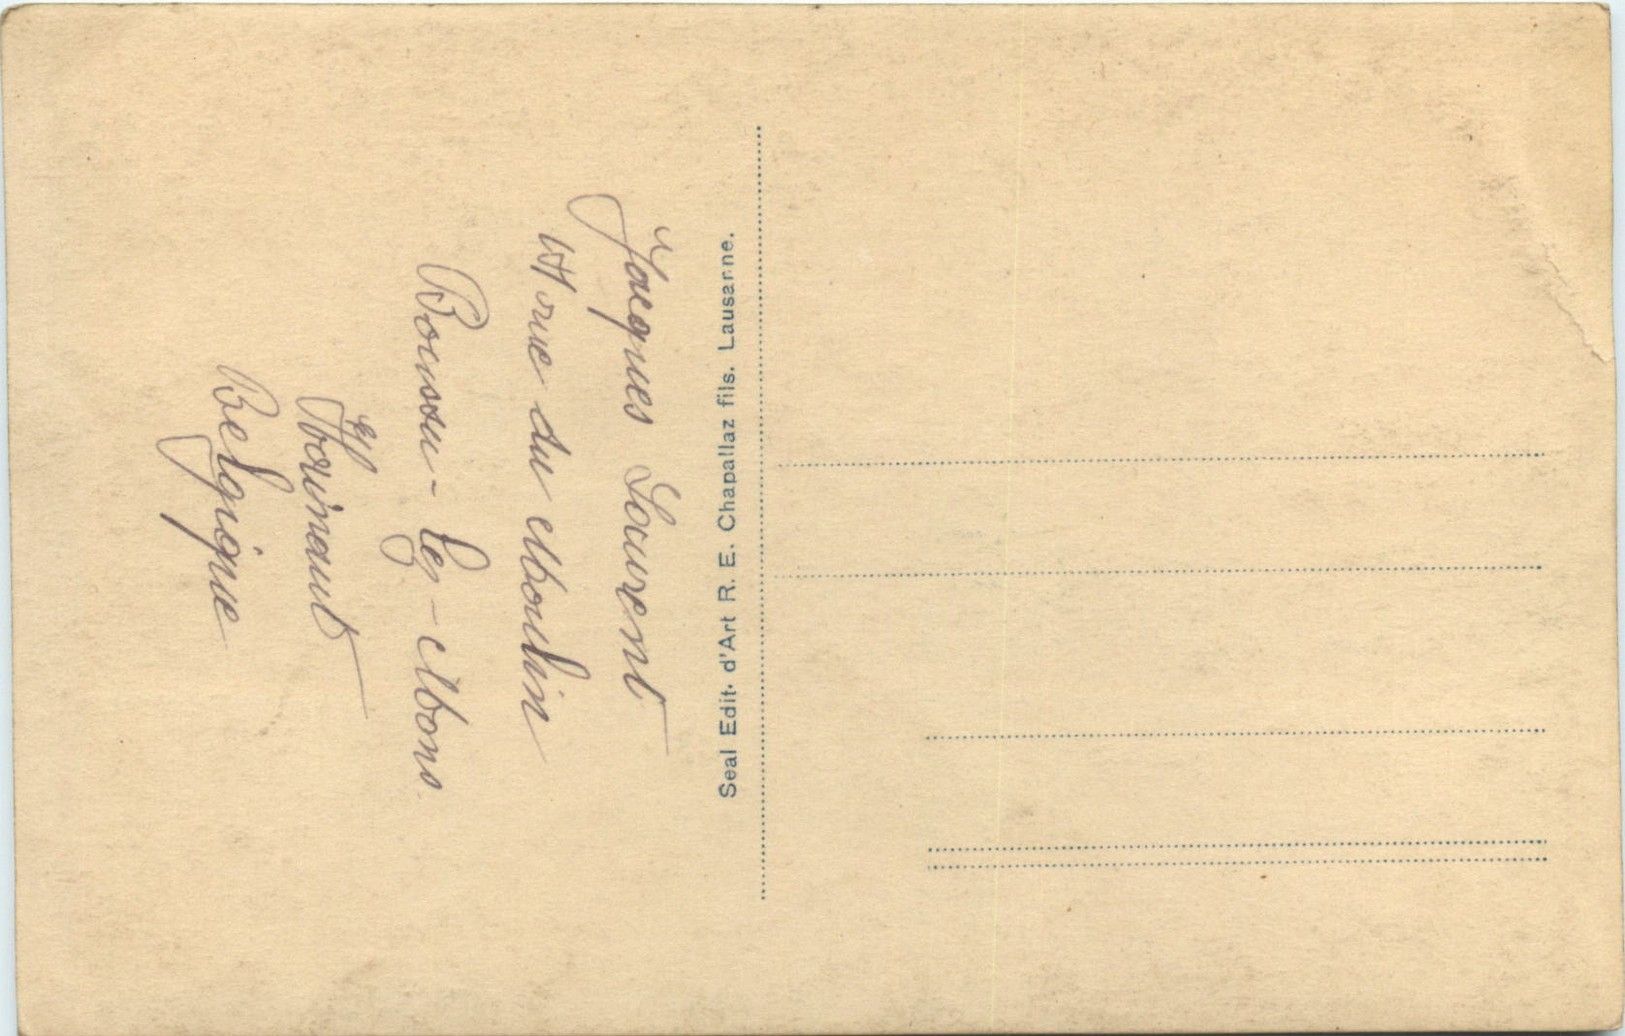 Jacques Laurent
rue du Moulin
Boussu-lez-Mons
Hainaut
Belgique
Seal Edit. d'Art R. E. Chapallaz fils. Lausanne.